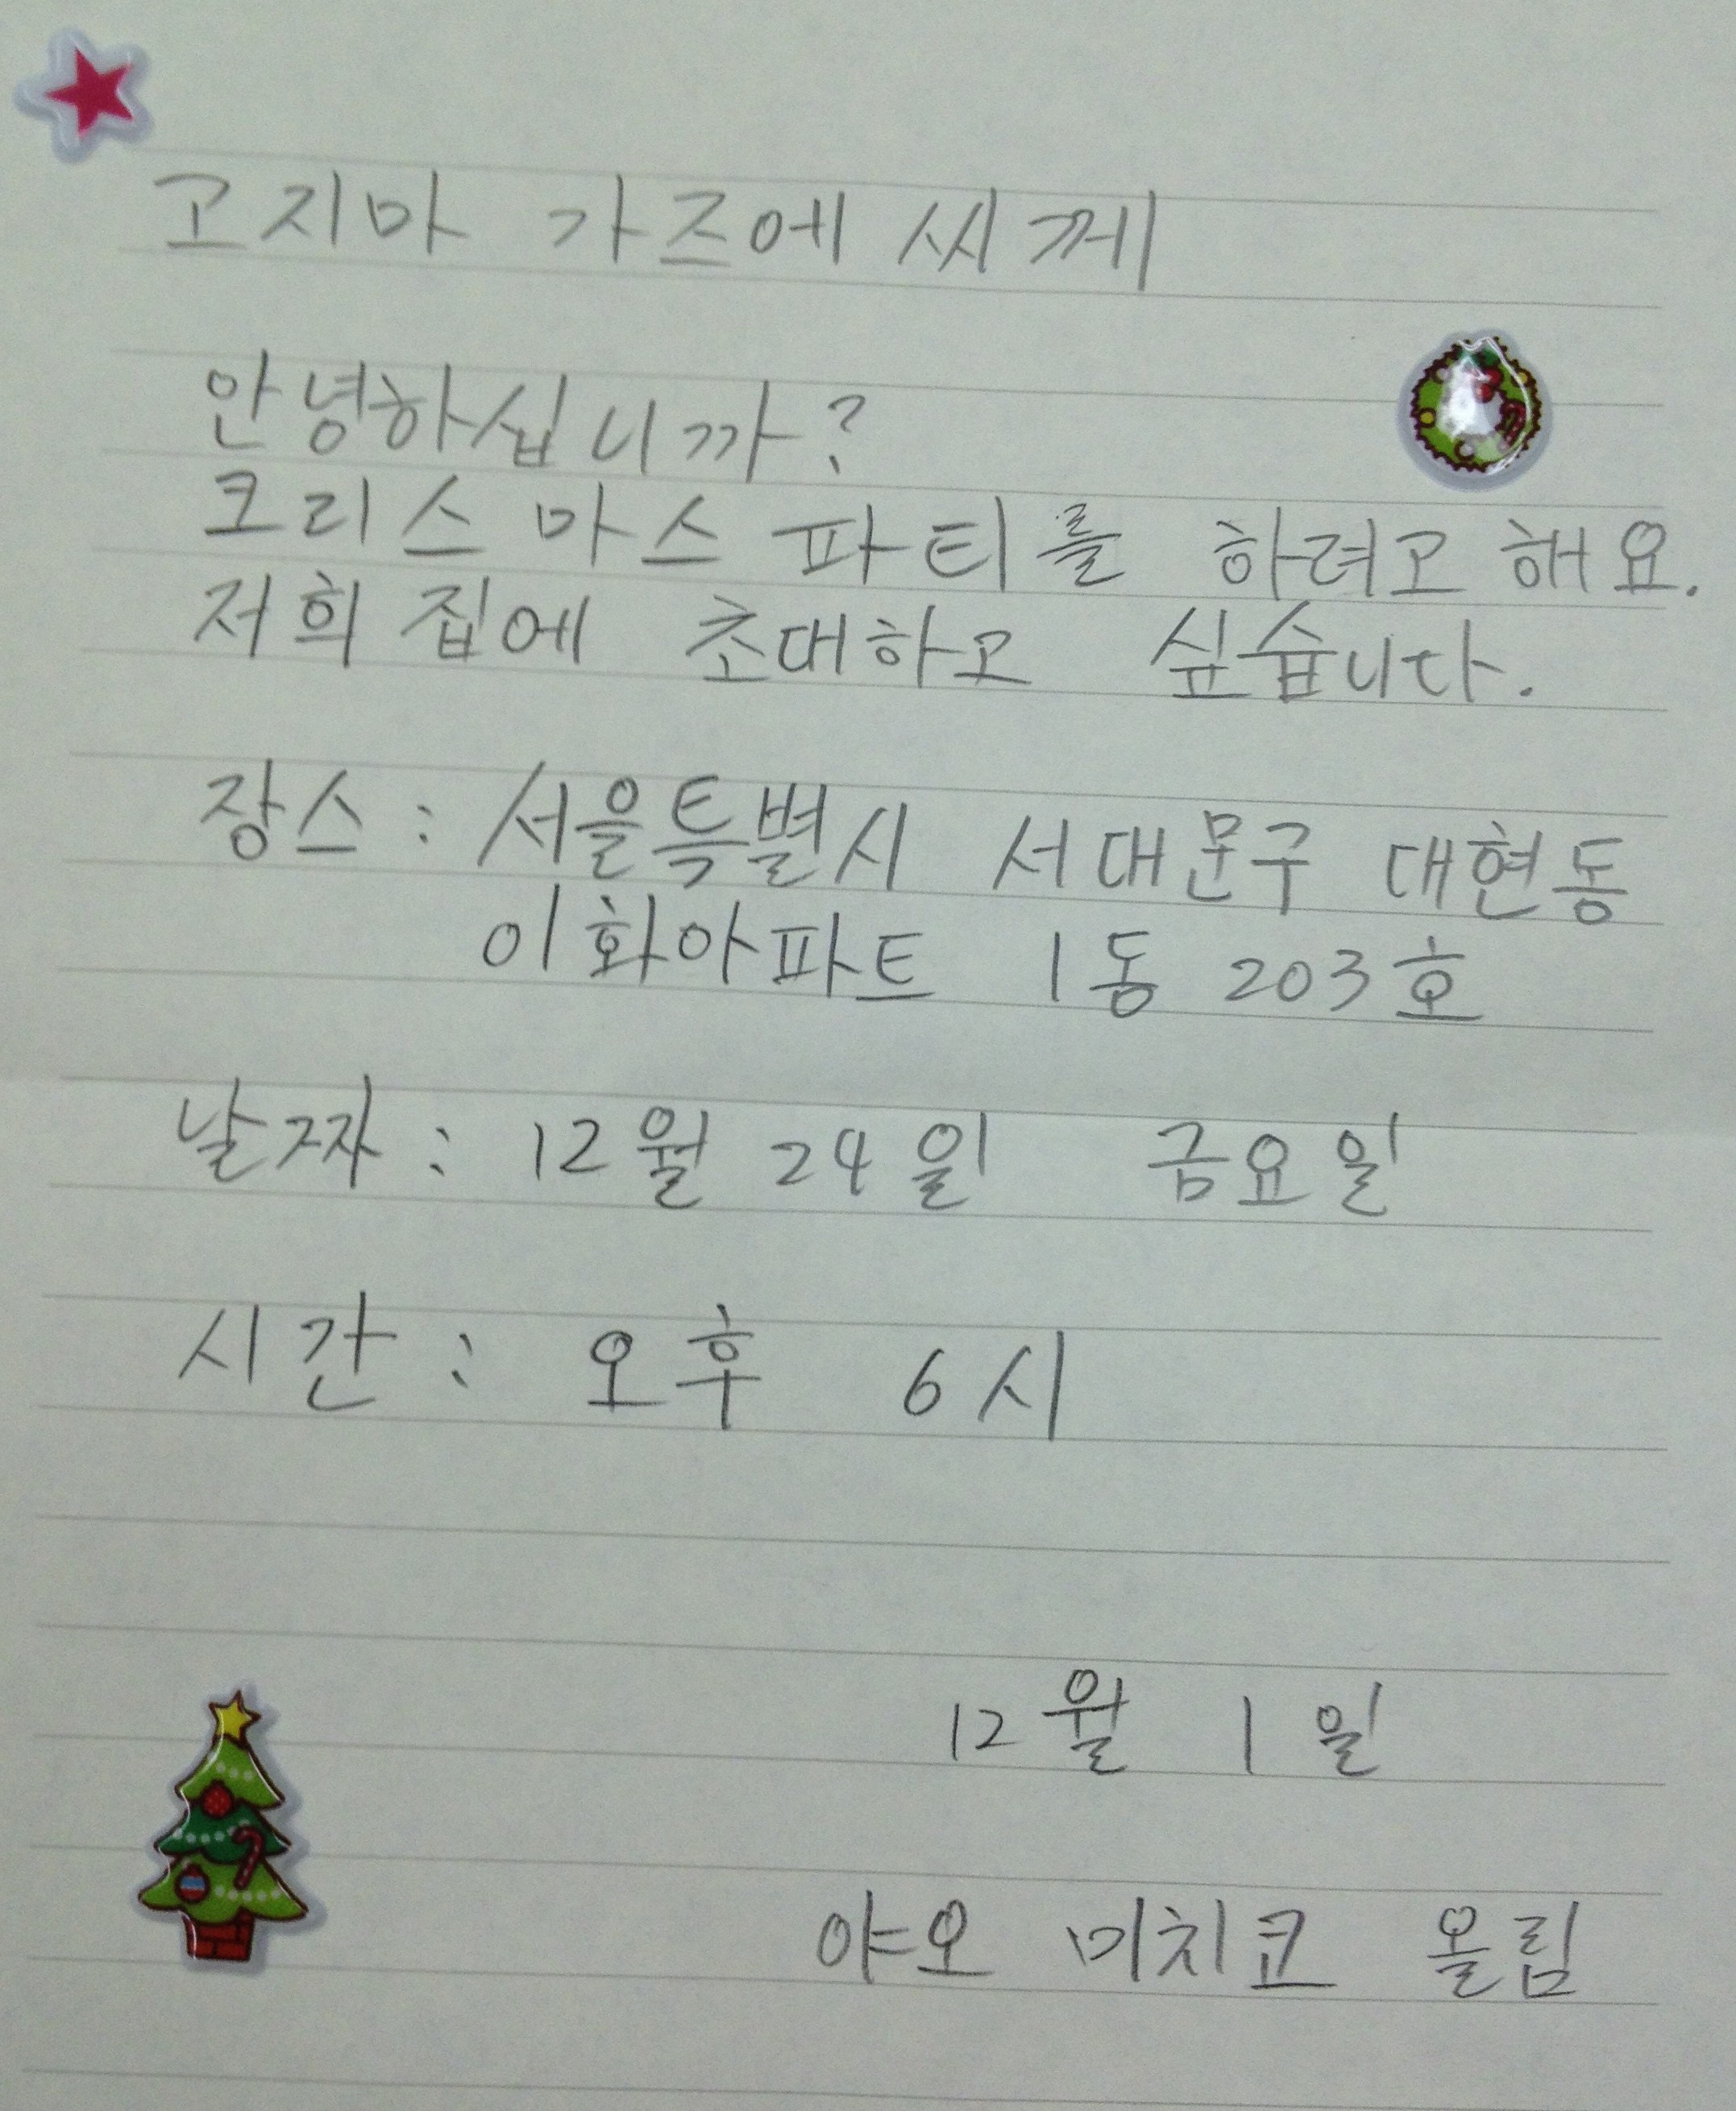 고지마 가즈에 씨께
안녕하십니까?
크리스마스 파티를 하려고 해요.
저희 집에 초대하고 싶습니다.
장스 : 서울특별시 서대문구 대현동
이화아파트 1동 203호
날짜 : 12월 24일 금요일
시간 : 오후 6시
12월 1일
야오 미치코 올림